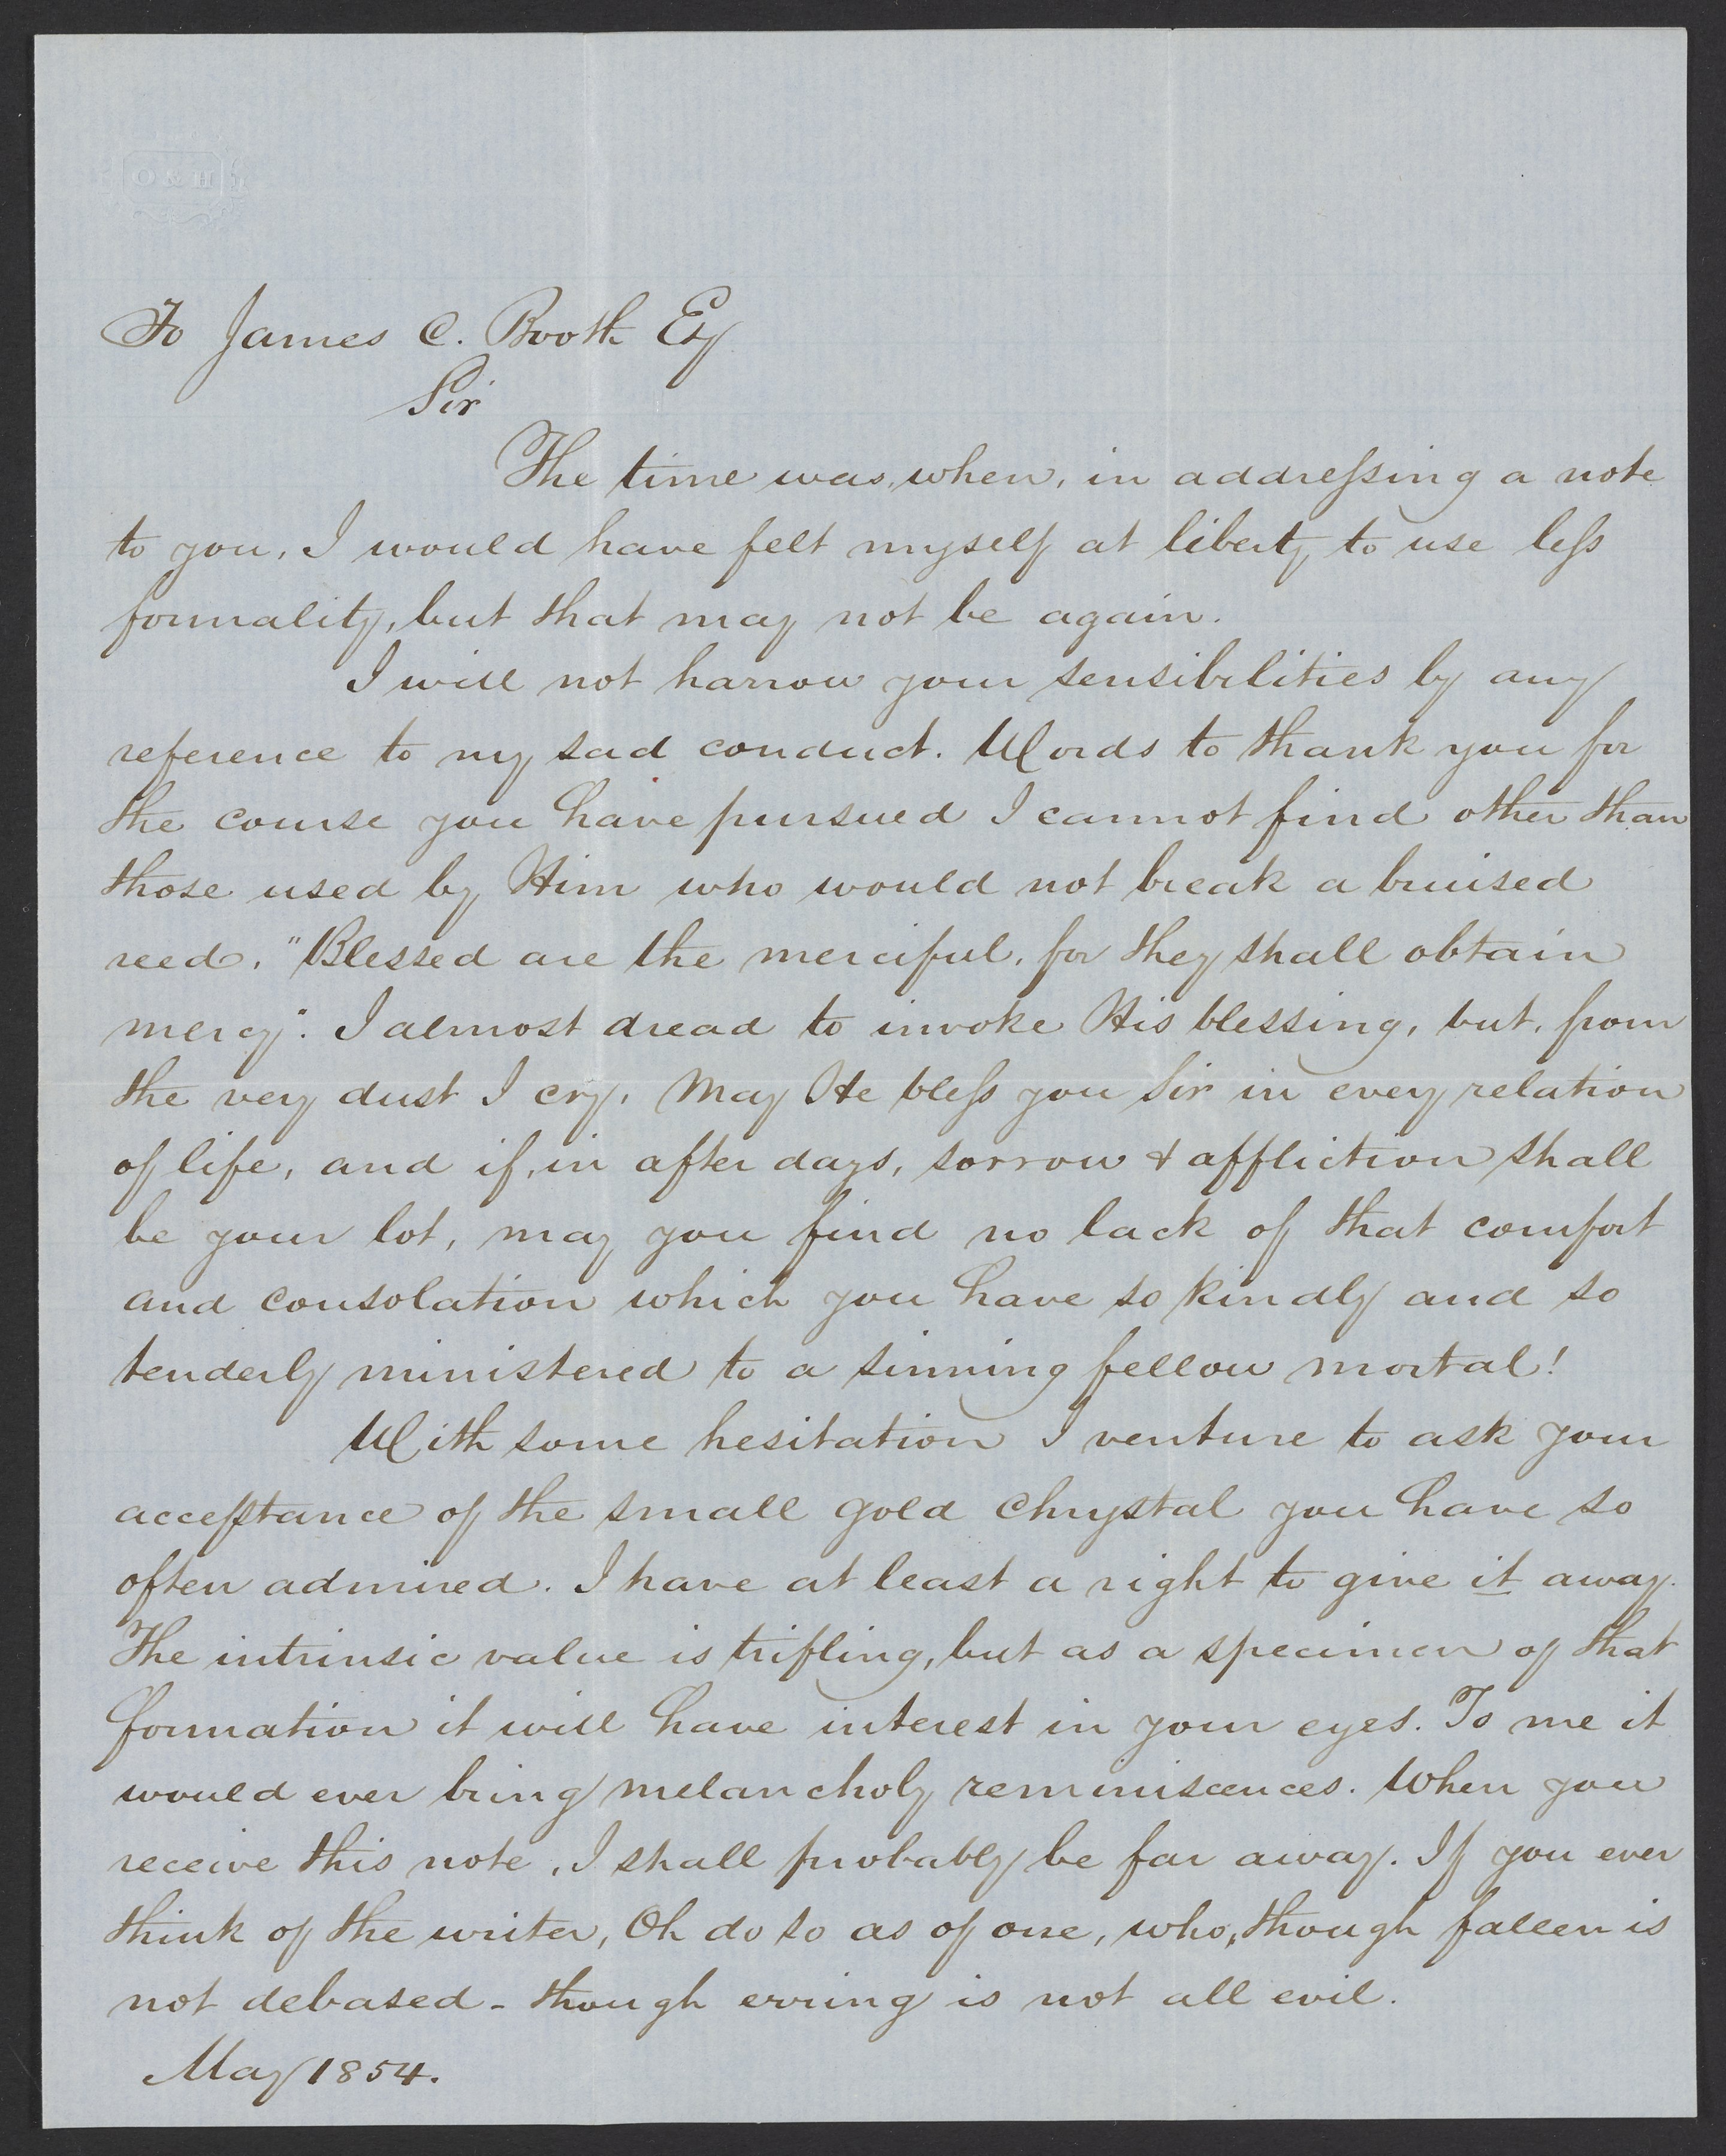 O & H
To James C. Booth Esq
Sir
The time was, when, in addressing a note
to you, I would have felt myself at liberty to use less
formality, but that may not be again.
I will not harrow your sensibilities by any
reference to my sad conduct. Words to thank you for
the course you have pursued I cannot find other than
those used by Him who would not break a bruised
reed. "Blessed are the merciful, for they shall obtain
mercy". I almost dread to invoke His blessing, but, from
the very dust I cry, May He bless you Sir in every relation
of life, and if, in after days, sorrow & affliction shall
be your lot, may you find no lack of that comfort
and consolation which you have so kindly and so
tenderly ministered to a sinning fellow mortal!
With some hesitation I venture to ask your
acceptance of the small gold chrystal you have so
often admired. I have at least a right to give it away.
The intrinsic value is trifling, but as a specimen of that
formation it will have interest in your eyes. To me it
would ever bring melancholy reminiscences. When you
receive this note, I shall probably be far away. If you ever
think of the writer, Oh do so as of one, who, though fallen is
not debased - though erring is not all evil.
May 1854.